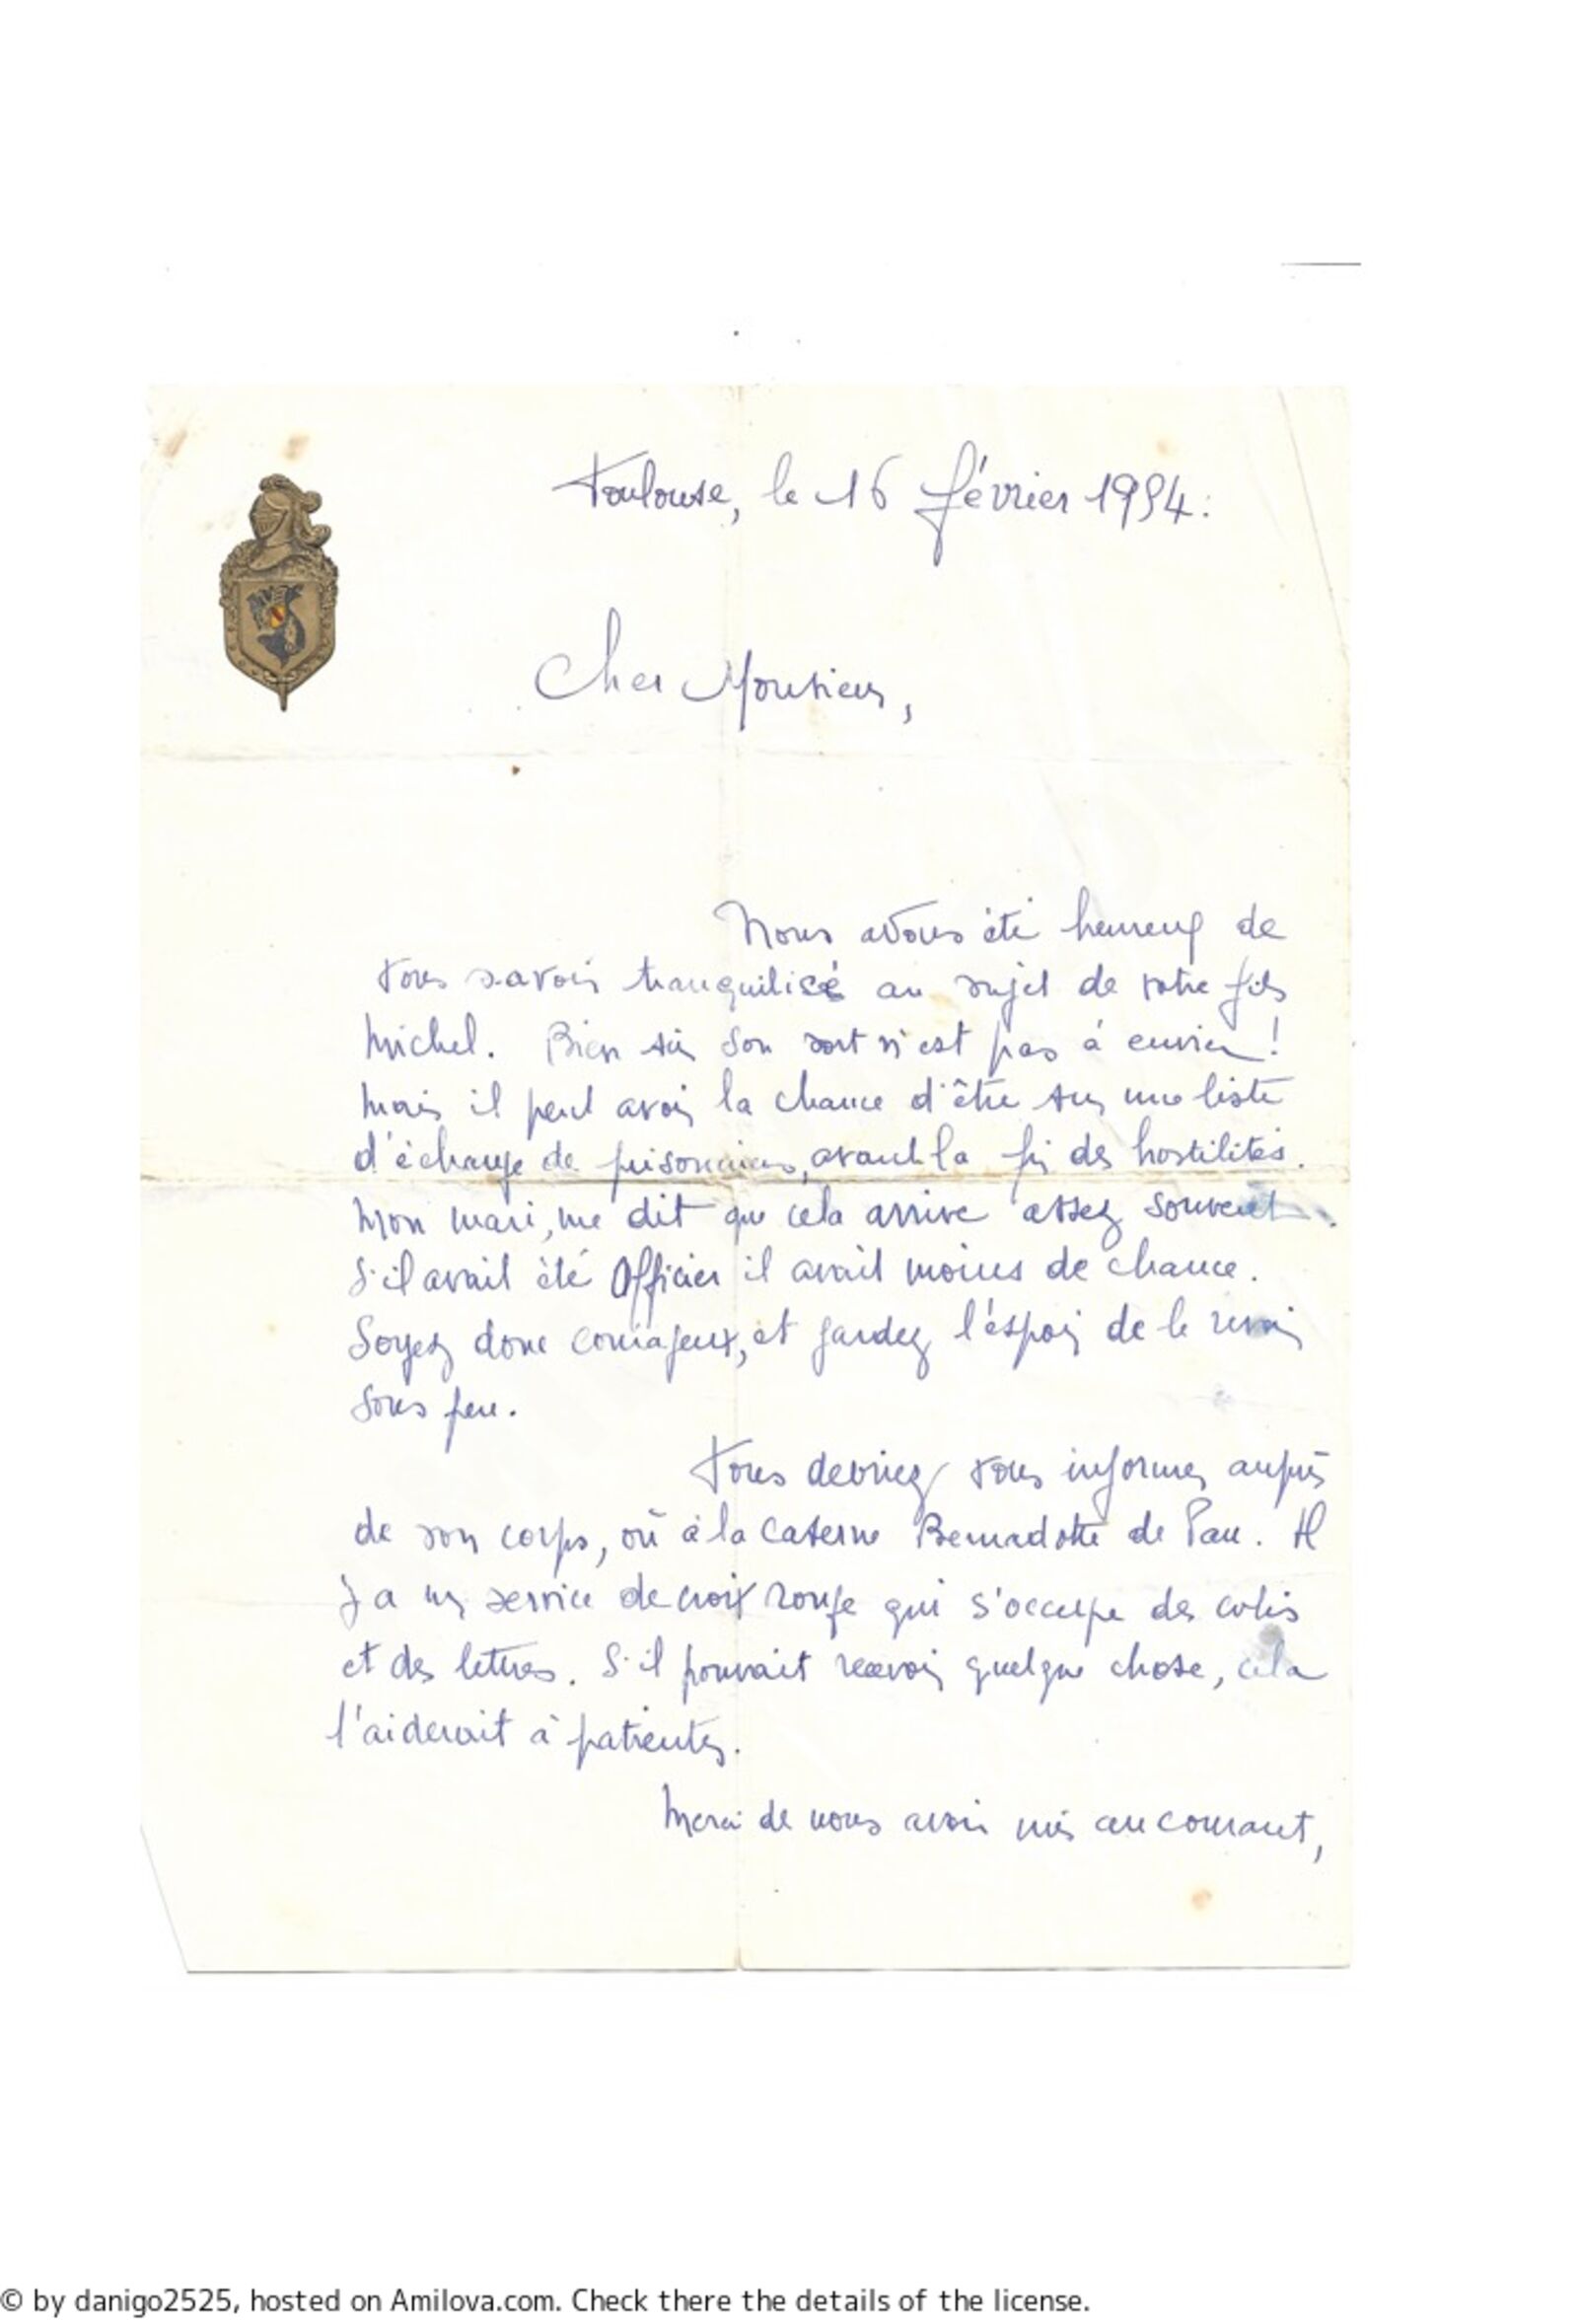 Toulouse, le 16 février 1954.
Cher Monsieur,
Nous avons été heureux de
vous savoir tranquilisé au sujet de votre fils
Michel. Bien sûr son sort n'est pas à envier !
Mais il peut avoir la chance d'être sur une liste
d'échange de prisonniers, avant la fin des hostilités.
Mon mari, me dit que cela arrive assez souvent.
S'il avait été Officier il avait moins de chance.
Soyez donc courageux, et gardez l'éspoir de le revoir
sous peu.
Vous devriez vous informer auprès
de son corps, où à la Caserne Bernadotte de Pau. Il
y a un service de croix rouge qui s'occupe des colis
et des lettres. S'il pouvait recevoir quelque chose, cela
l'aiderait à patienter.
Merci de nous avoir mis au courant,
© by danigo2525, hosted on Amilova.com. Check there the details of the license.